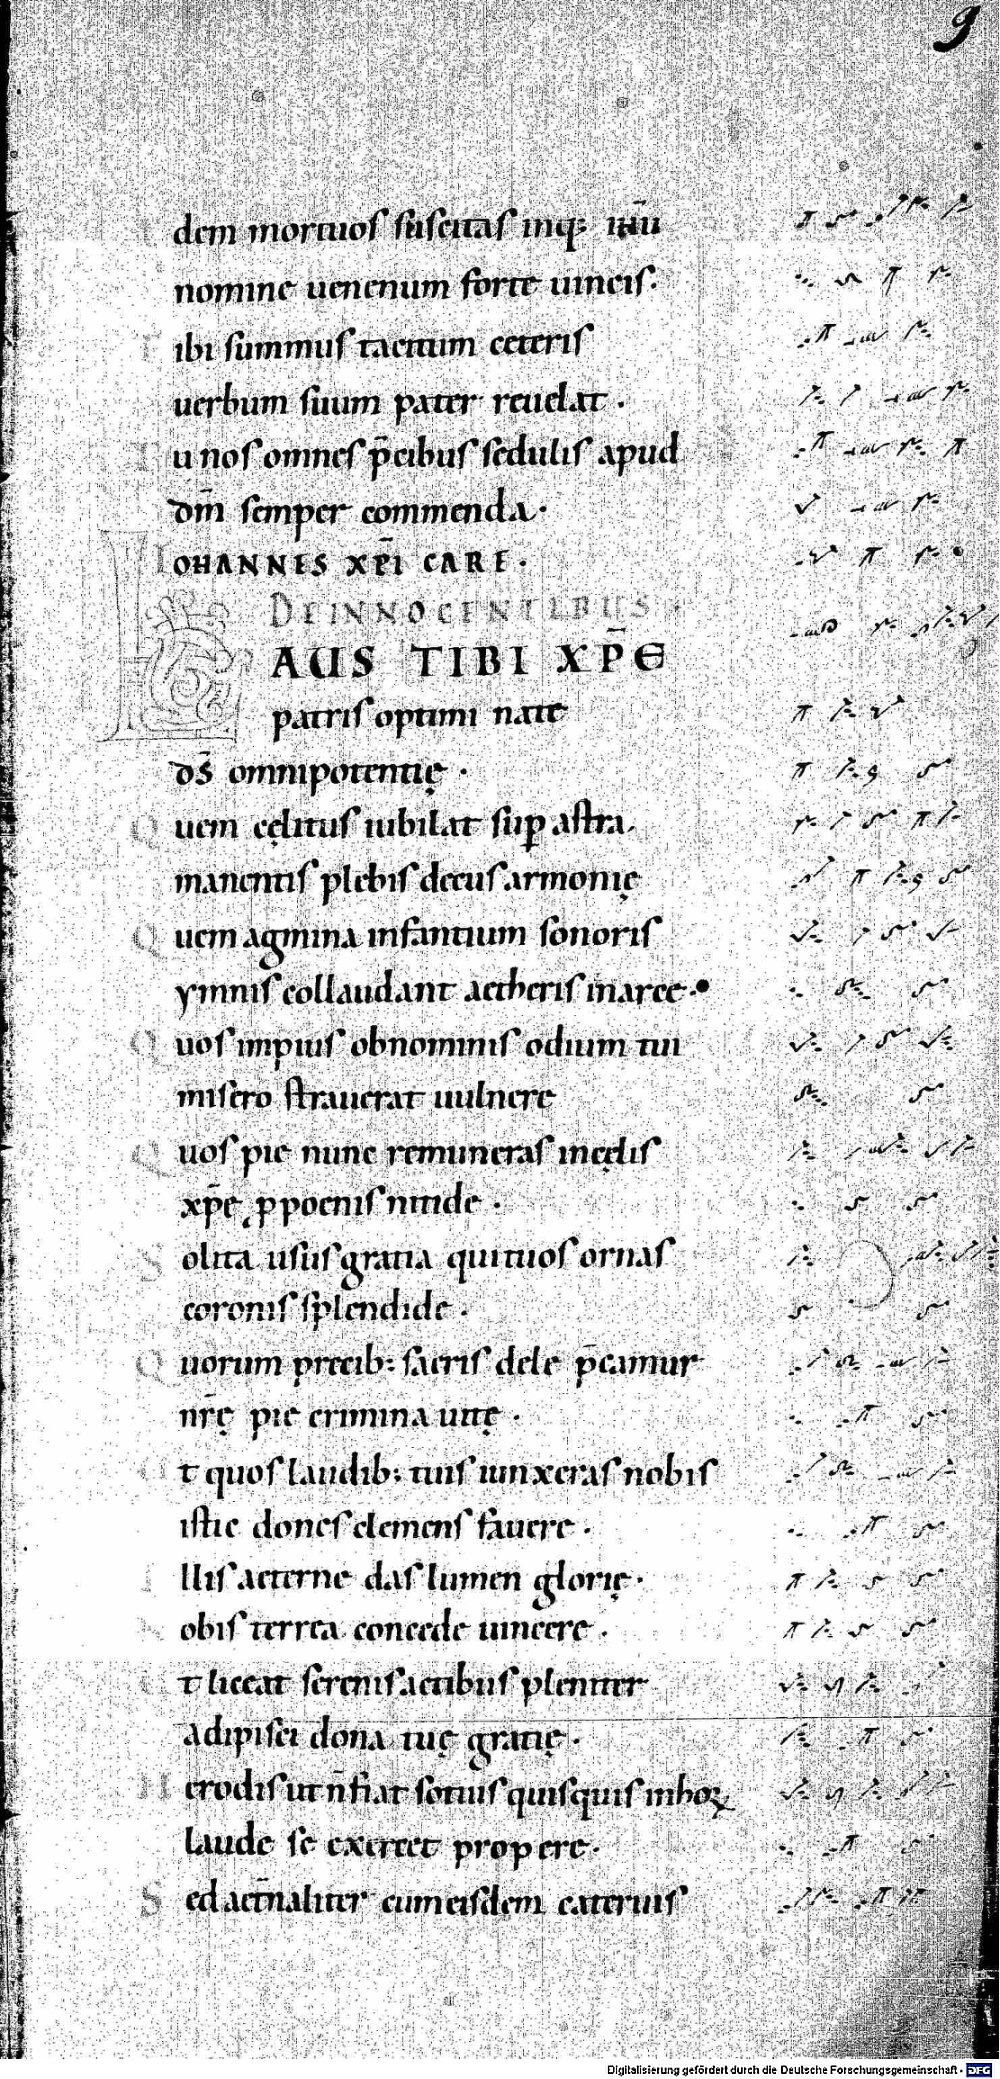 9
dem mortuos suscitas inq; iħu
nomine uenenum forte uincis.
Tibi summus tacitum ceteris
uerbum suum pater reuelat .
Tu nos omnes p̄cibus sedulis apud
dm̄ semper commenda.
IOHANNES XP̄I CARE .
DE INNOCENTIBUS .
LAUS TIBI XP̄E
patris optimi nate
ds̄ omnipotentię .
Quem cęlitus iubilat sup astra,
manentis plebis decus armonię
Quem agmina infantium sonoris
ymnis collaudant aetheris in arce.
Quos impius ob nominis odium tui
misero strauerat uulnere
Quos pie nunc remuneras in cęlis
xp̄e, p poenis nitide .
Solita usus gratia qui tuos ornas
coronis splendide .
Quorum precib; sacris dele p̄camur
nr̄ę pie crimina uitę .
Et quos laudib; tuis iunxeras nobis
istic dones clemens fauere .
Illis aeterne das lumen glorię.
Nobis terrea concede uincere .
Ut liceat serenis actibus pleniter
adipisci dona tuę gratię.
Herodis ut n̄ fiat sotius quisquis in hoꝝ
laude se exercet propere.
Sed aet̄naliter cum eisdem cateruis
Digitalisierung gefördert durch die Deutsche Forschungsgemeinschaft - DFG